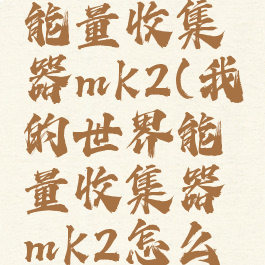 能量收集
器mk2(我
的世界能
量收集器
mk2怎么